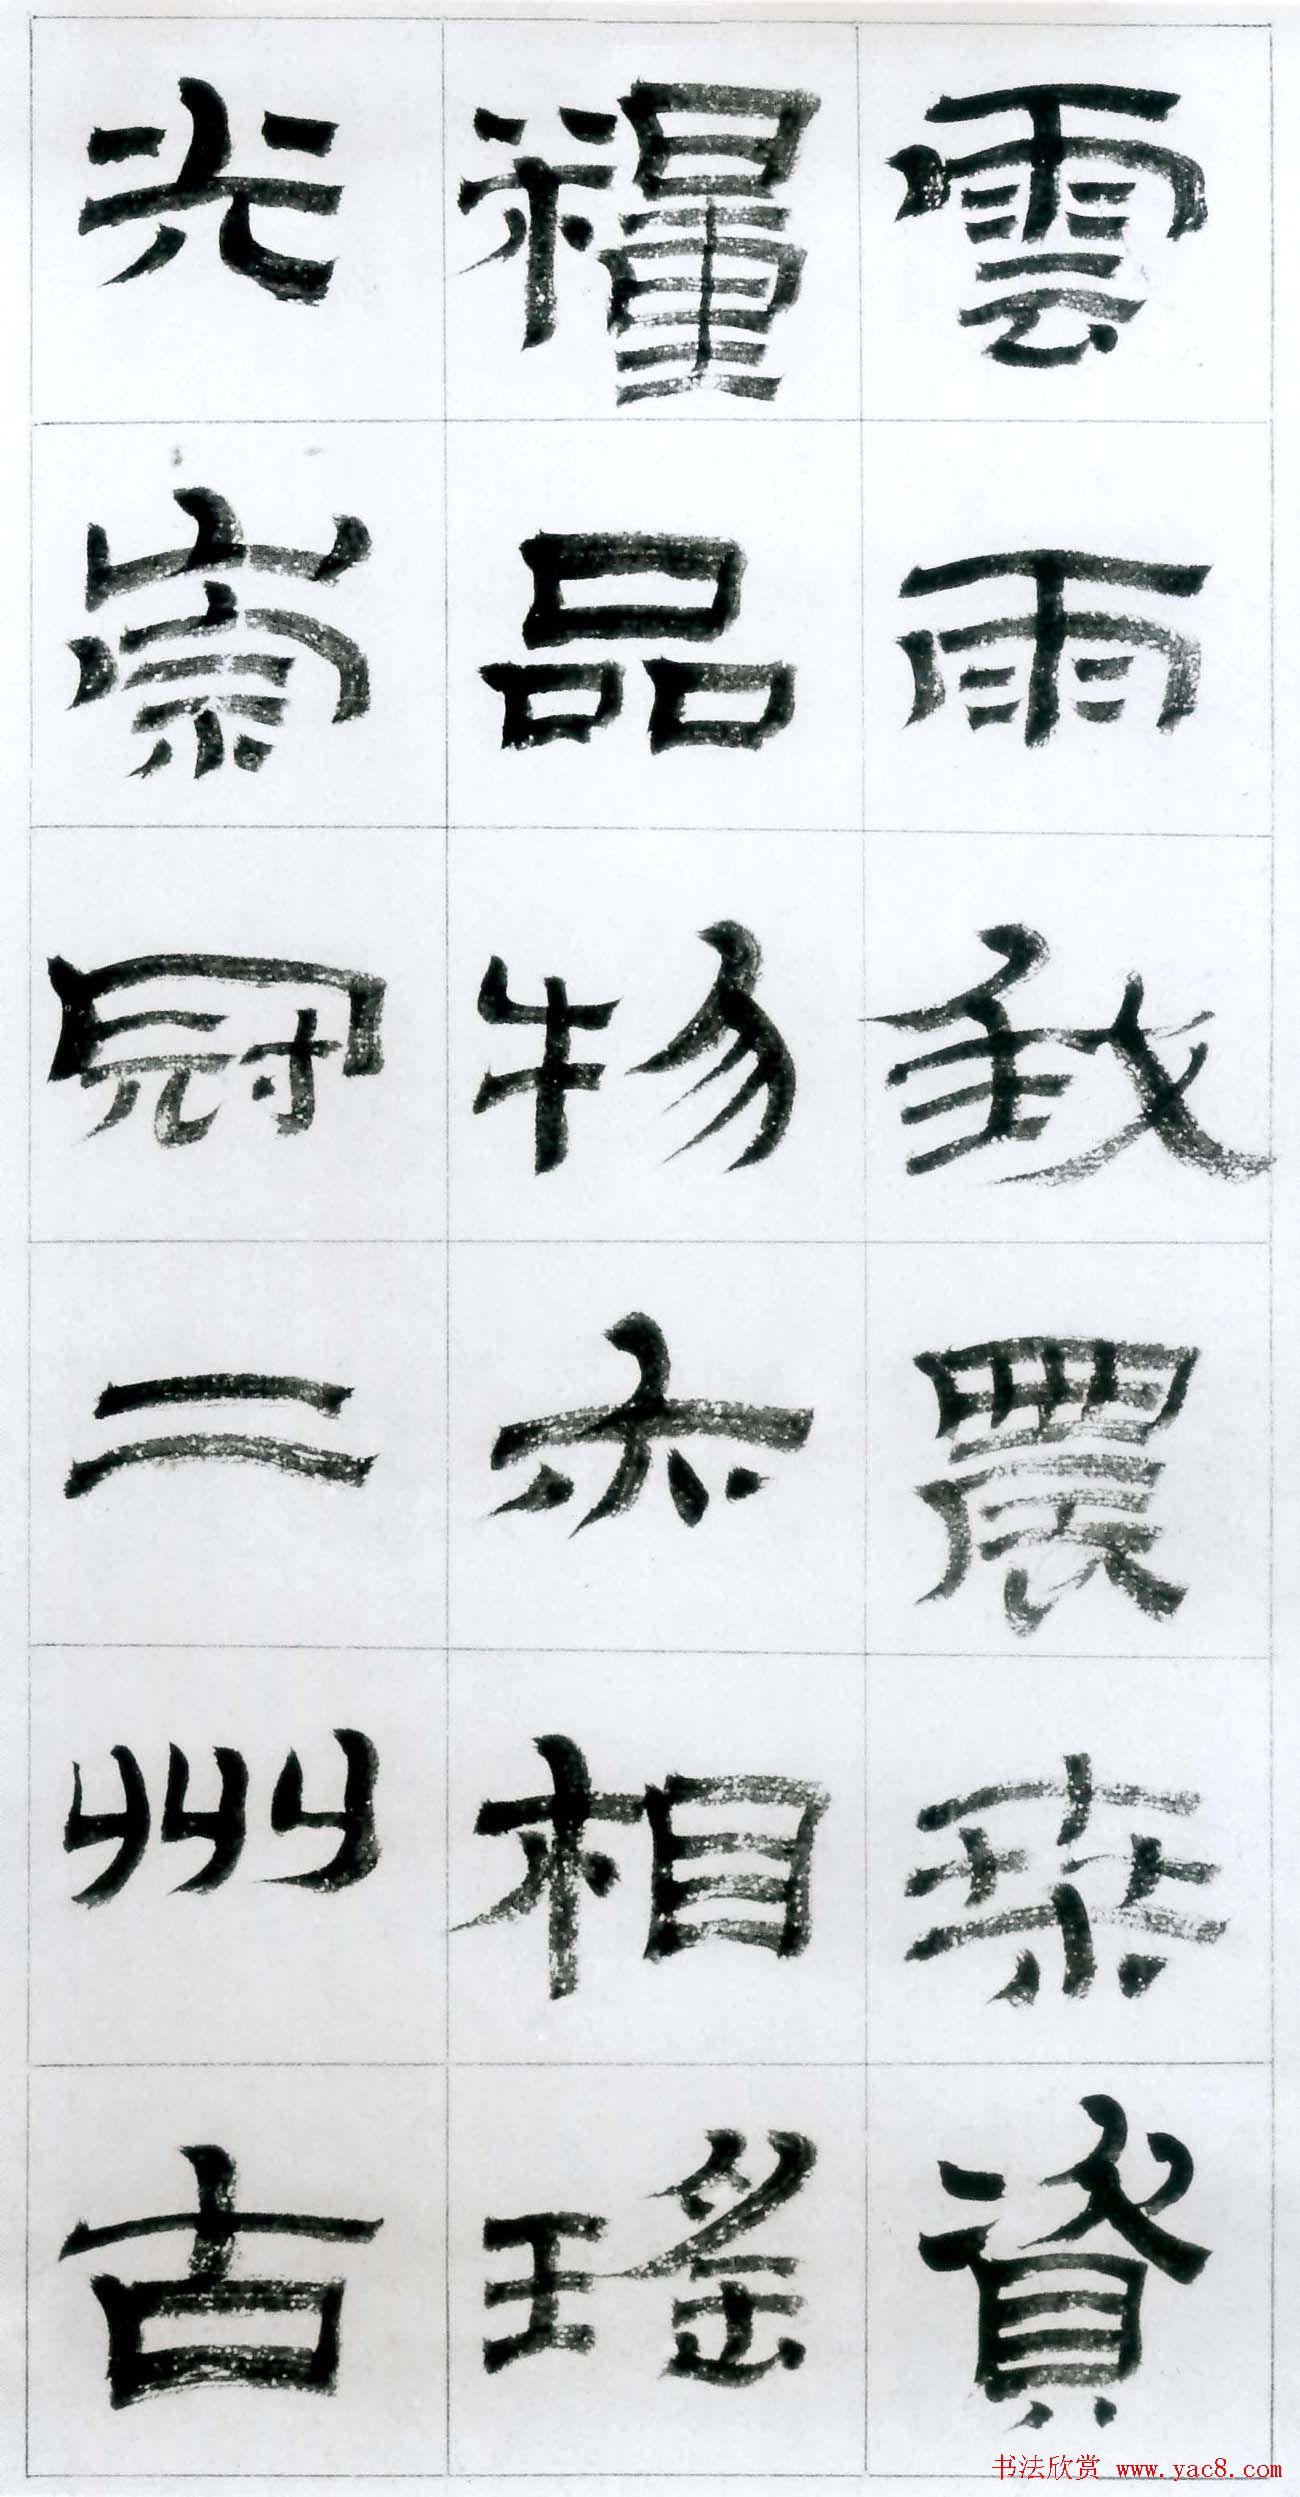 雲雨我農桑資
糧品物亦相瑤
光崇冠二州古
书法欣赏 www.yac8.com